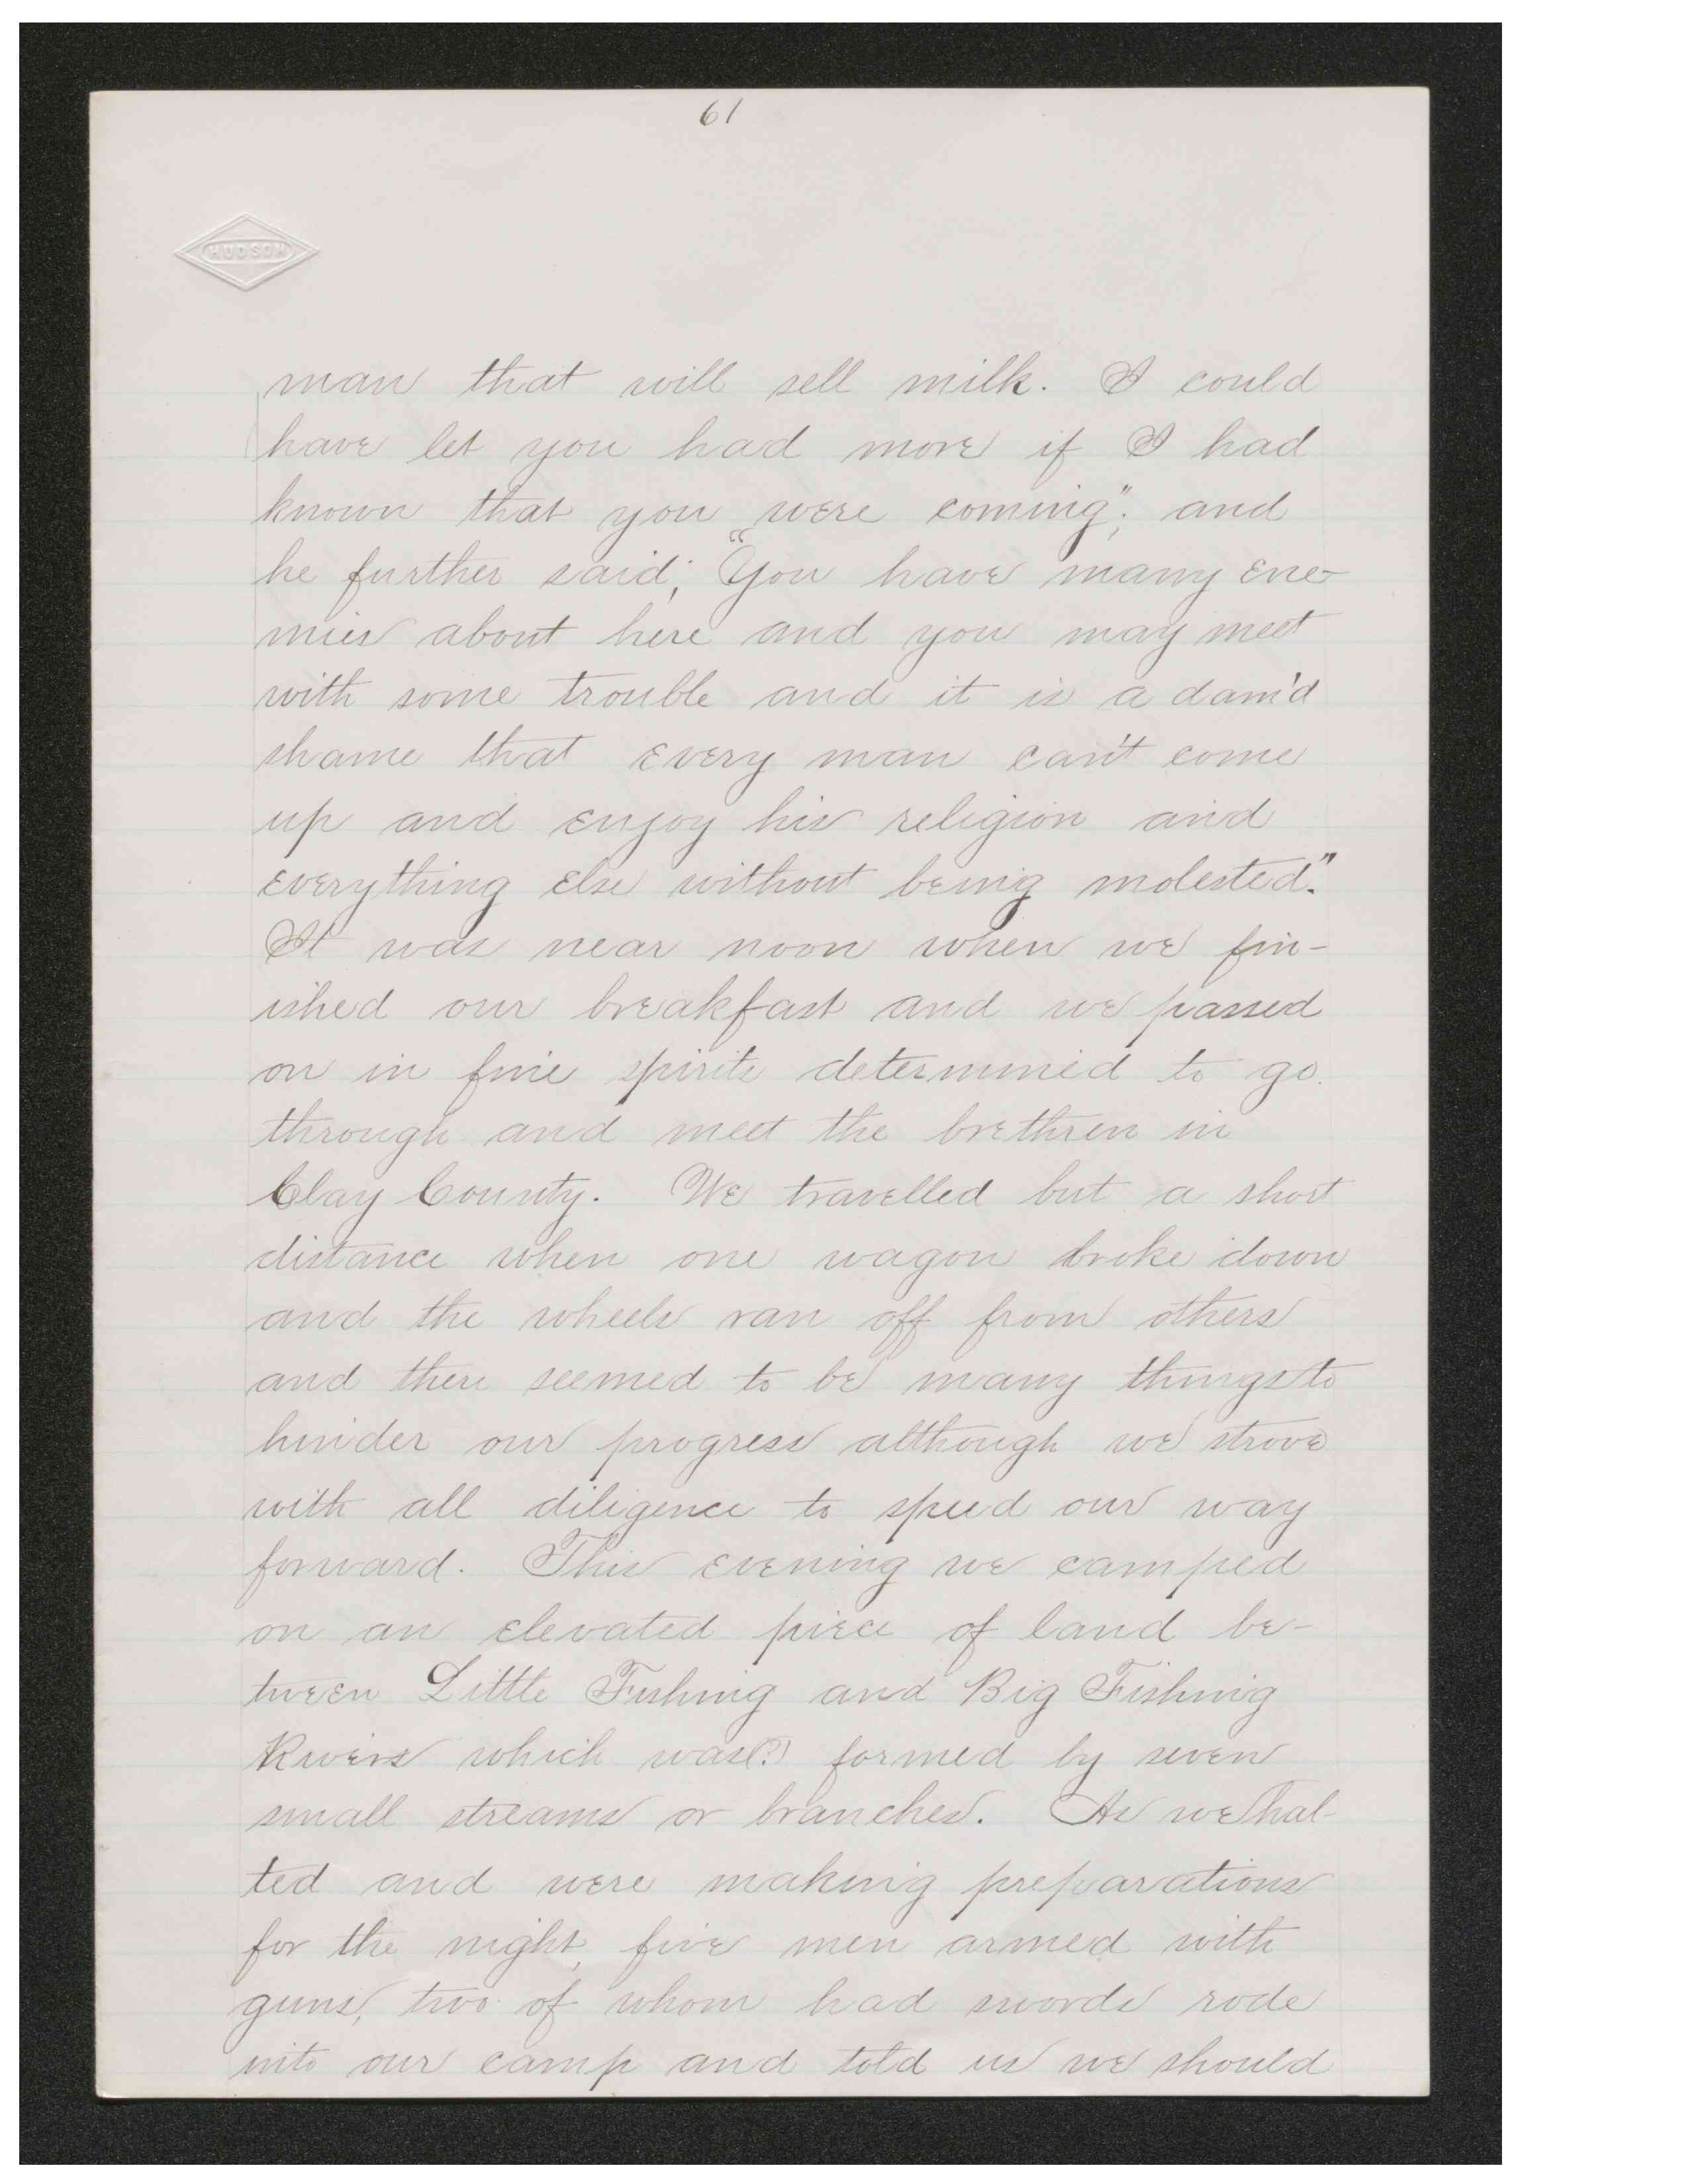 61
HUDSON
man that will sell milk. I could
have let you had more if I had
known that you were coming"; and
he further said; "You have many ene-
mies about here and you may meet
with some trouble and it is a dam'd
shame that every man can't come
up and enjoy his religion and
everything else without being molested."
It was near noon when we fin-
ished our breakfast and we passed
on in fine spirits determined to go
through and meet the brethren in
Clay County. We travelled but a short
distance when one wagon broke down
and the wheels ran off from others
and there seemed to be many things to
hinder our progress although we strove
with all diligence to speed our way
forward. This evening we camped
on an elevated piece of land be-
tween Little Fishing and Big Fishing
Rivers which was(?) formed by seven
small streams or branches. As we hal-
ted and were making preparations
for the night, five men armed with
guns, two of whom had swords rode
into our camp and told us we should